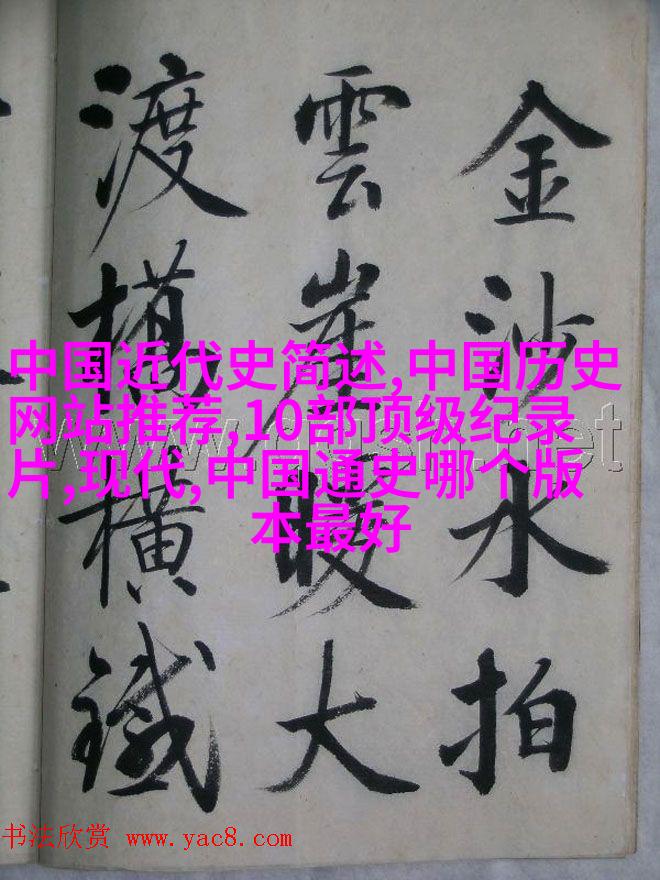 金沙水拍
雲崖暖大
渡橋橫鐵
中国近代史简述,中国历史
网站推荐,10部顶级纪录
片,现代,中国通史哪个版
本最好
书法欣赏 www.yac8.com